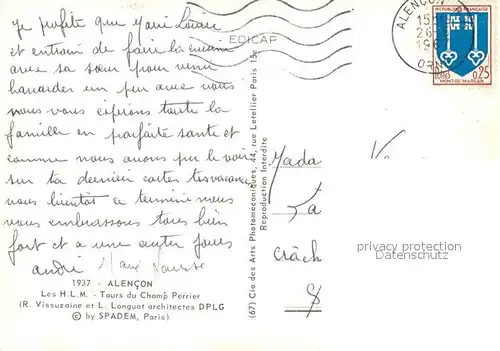 Je profite que Marie Louise
et entrain de faire la cuisine
avec sa sœur pour venir
bavarder un peu avec vous
nous vous espérons toute la
famille en parfaite santé et
comme nous avons pu le voir
sur ta dernier cartes tes vacances
vous bientôt ce terminé nous
vous embrassons tous bien
fort et a une autre fois
andré Marie Louise
1937 - ALENÇON
Les H.L.M. - Tours du Champ Perrier
(R. Vissuzaine et L. Longuet architectes DPLG
© by SPADEM, Paris)
EDICAP
(67) Cie des Arts Photomécaniques, 44, rue Letellier Paris 15e
Reproduction Interdite
ALENCON
15
26
196
ORN
REPUBLIQUE FRANÇAISE
POSTES
0,25
MONT-DE-MARSAN
Mada
crâch
privacy protection
Datenschutz